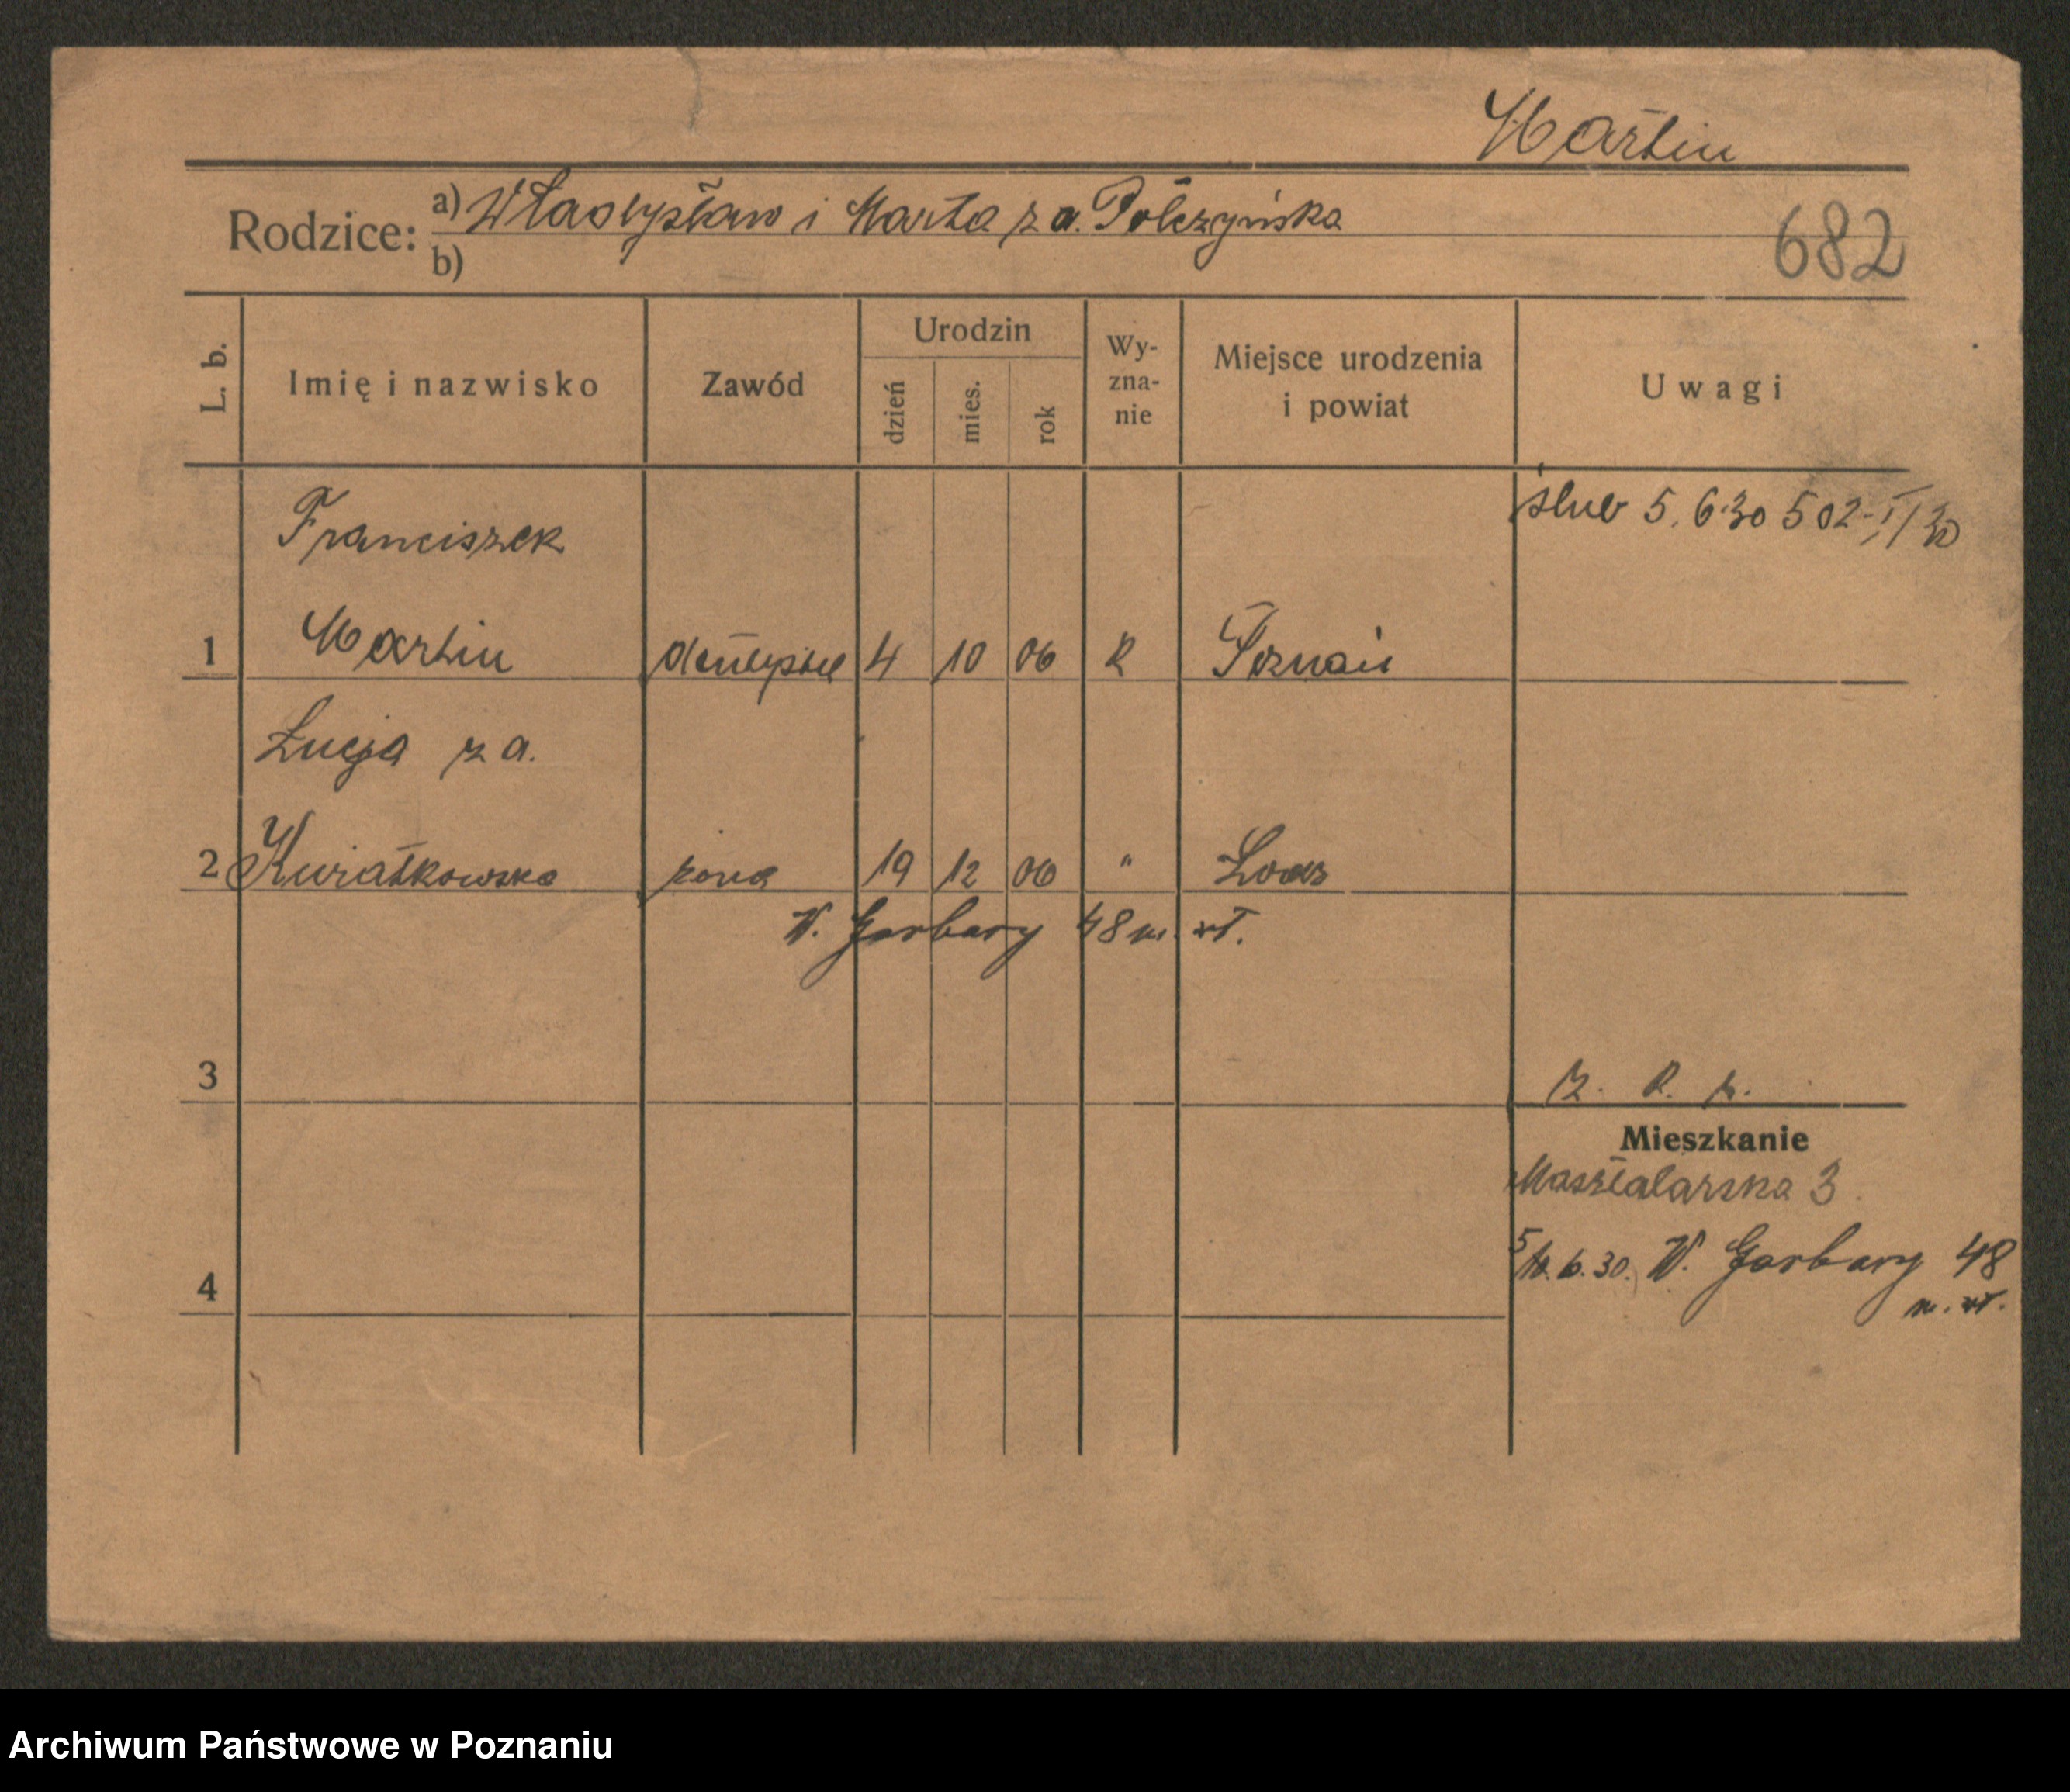 Martin
682
Rodzice: a) Władysław i Marta z d. Połczyńska
b)
L. b.
Imię i nazwisko
Zawód
Urodzin
dzień
mies.
rok
Wy-
zna-
nie
Miejsce urodzenia
i powiat
Uwagi
Franciszek
ślub 5.6.30 502 I/30
1 Martin dentysta 4 10 06 R Poznań
Łucja z d.
2 Kwiatkowska żona 19 12 06 "
W. Garbary 48 m. wł.
3
Mieszkanie
Masztalarska 3
4
10.6.30. W. Garbary 48
m. wł.
Archiwum Państwowe w Poznaniu